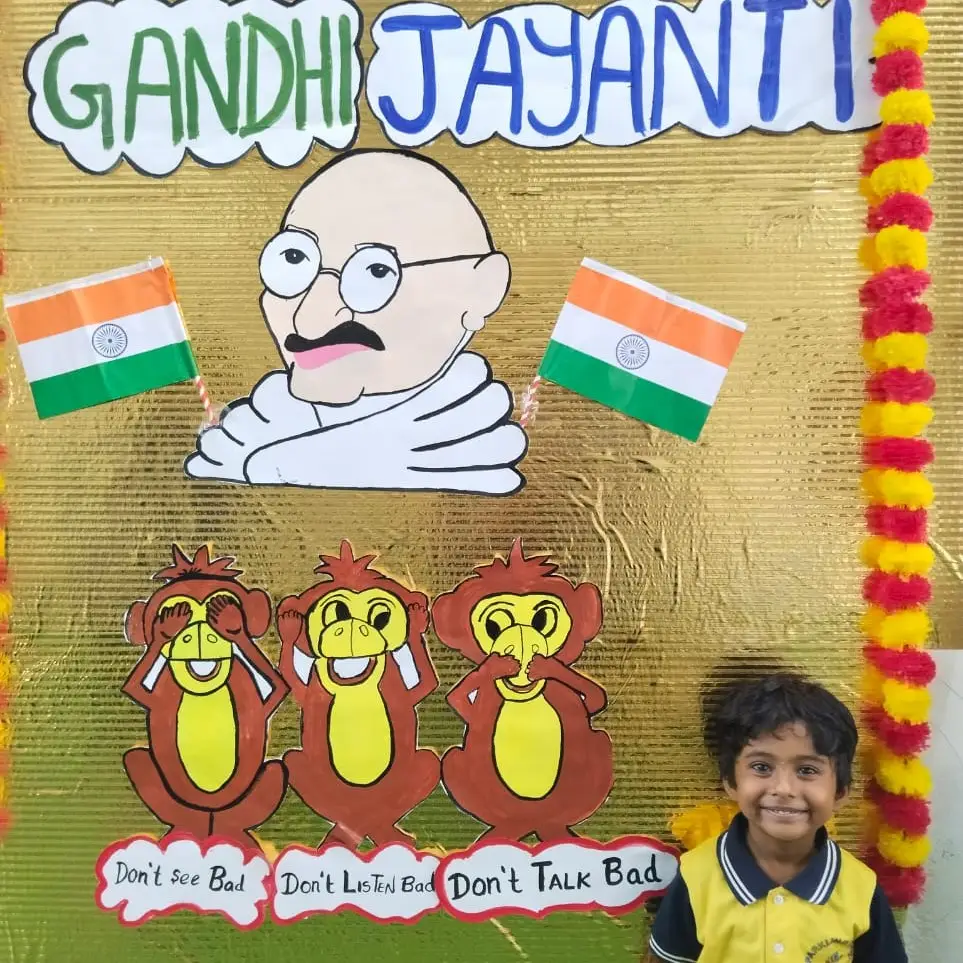 GANDHI JAYANTI
Don't see Bad
Don't LISTEN Bad
Don't TALK Bad